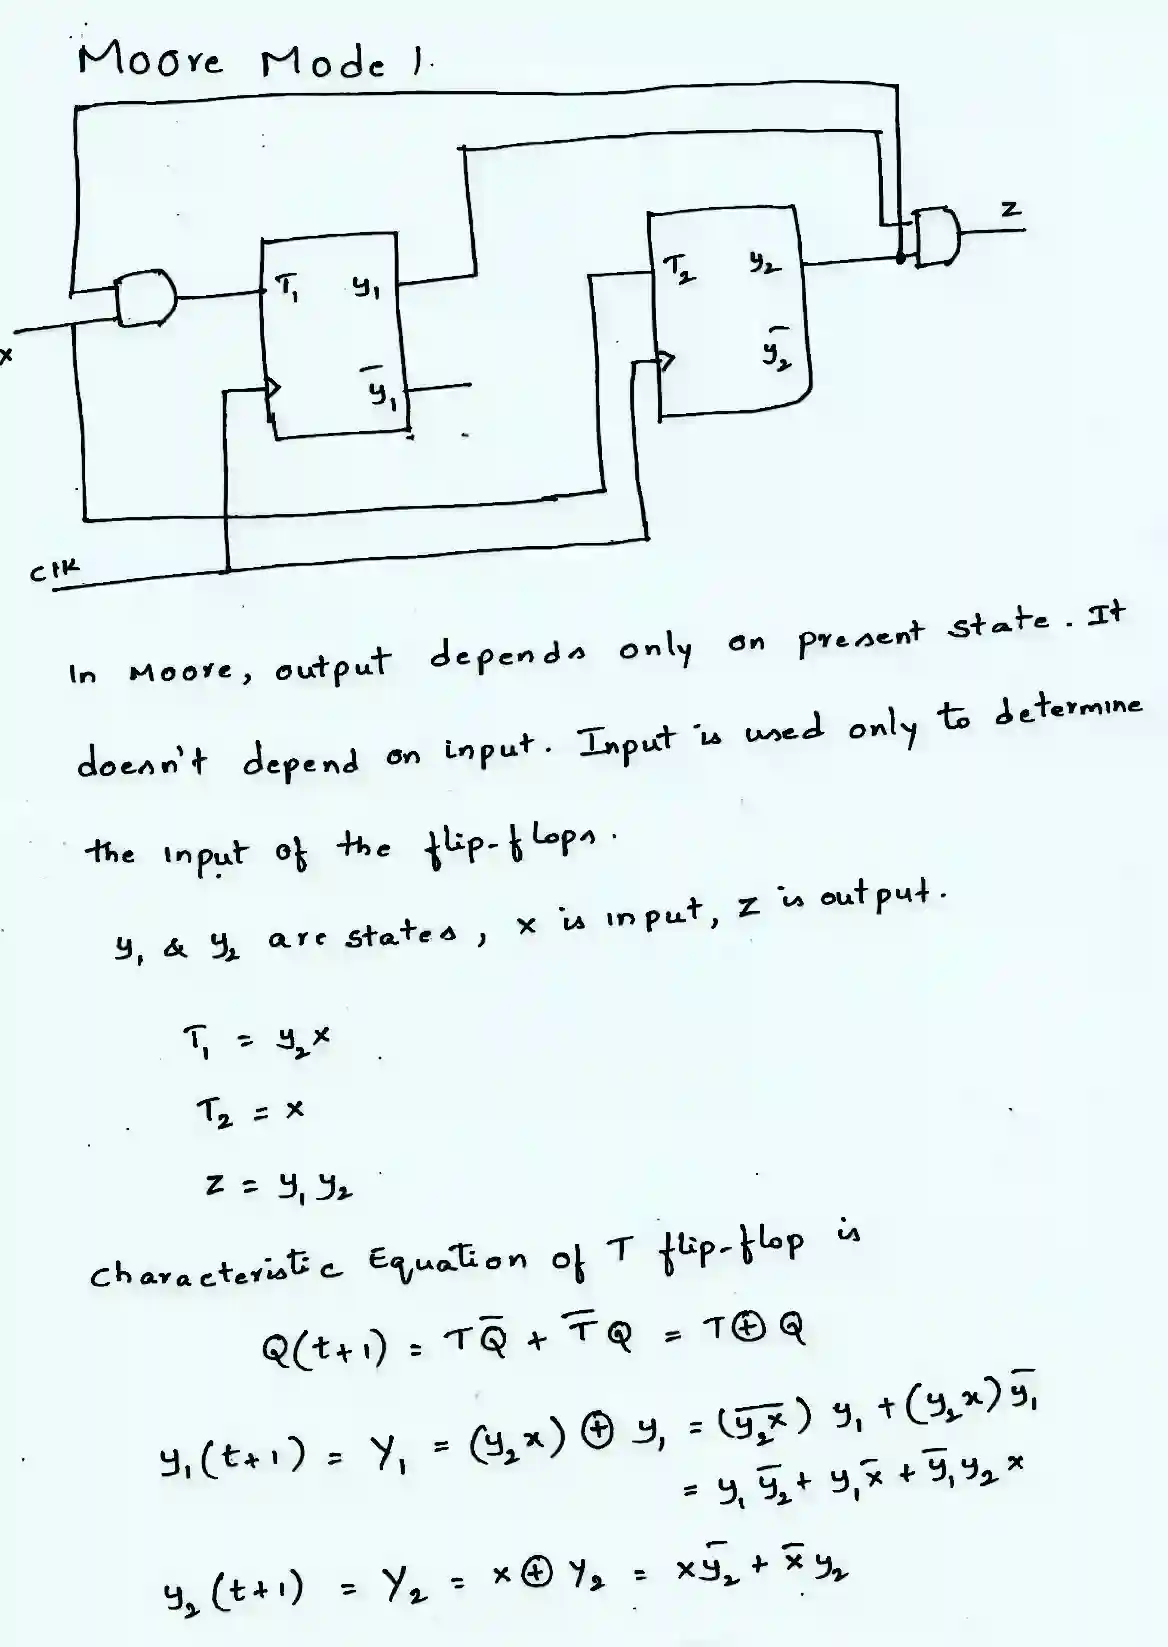 Moore Model.
z
T₁ y₁
T₂ y₂
x
ȳ₂
ȳ₁
clk
In Moore, output depends only on present state. It
doesn't depend on input. Input is used only to determine
the input of the flip-flops.
y₁ & y₂ are states, x is input, z is output.
T₁ = y₂x
T₂ = x
z = y₁ y₂
Characteristic Equation of T flip-flop is
Q(t+1) = TQ̅ + T̅Q = T⊕Q
y₁(t+1) = Y₁ = (y₂x) ⊕ y₁ = (y̅₂̅x̅) y₁ + (y₂x) ȳ₁
= y₁ ȳ₂ + y₁x̅ + ȳ₁y₂ x
y₂(t+1) = Y₂ = x ⊕ Y₂ = xȳ₂ + x̅ y₂